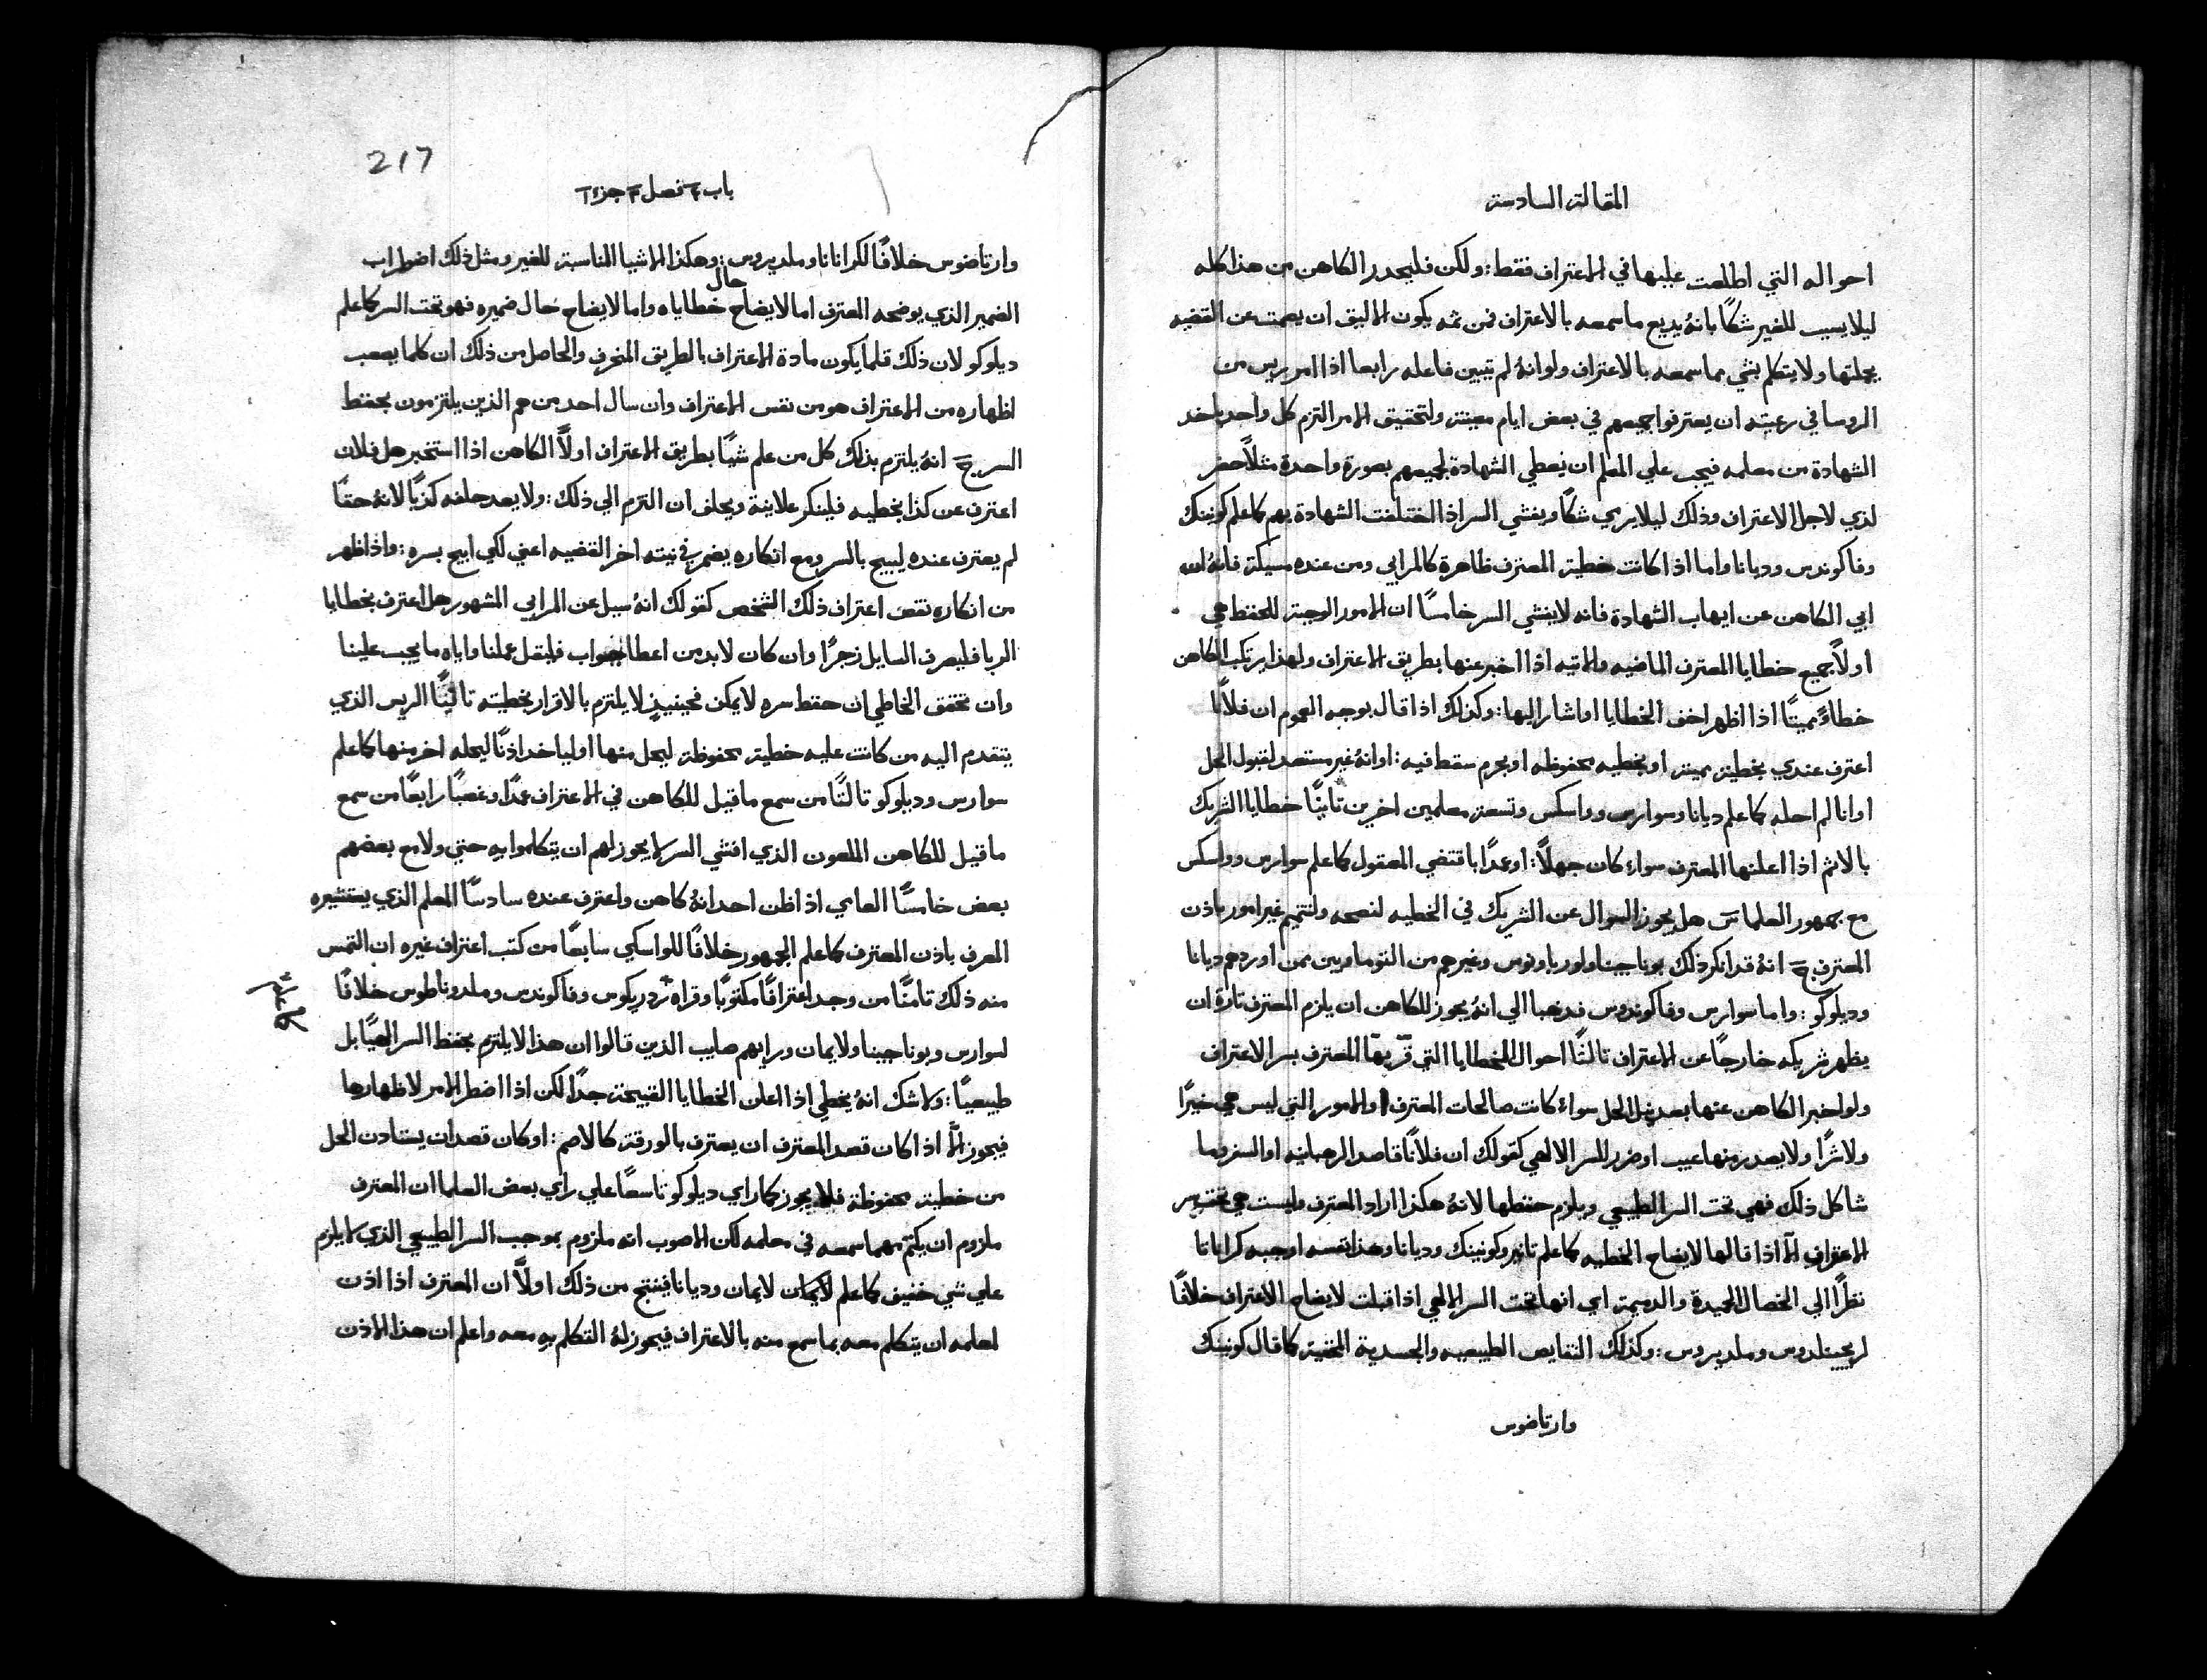 المقالة السادسة
احواله التي اطلعت عليها في الاعتراف فقط: ولكن فليحدر الكاهن من هذا كله
ليلا يسبب للغير شكًا بانهُ يديع ما سمعه بالاعتراف فمن ثمه يكون الاليق ان يصمت عن القضيه
بجملتها ولا يتكلم بشي مما سمعه بالاعتراف ولو انهُ لم تبين فاعله رابعا اذا امر ريس من
الروسا في رعيته ان يعترفوا جميعهم في بعض ايام معينة ولتحقيق الامر التزم كل واحد ياخد
الشهادة من معلمه فيجب علي المعلم ان يعطي الشهادة لجميعهم بصورة واحدة مثلاً حضر
لدي لاجل الاعتراف وذلك ليلا يري شكًا ويفشي السر اذا اختلفت الشهادة بهم كما علم كونينك
وفاكوندس وديانا واما اذا كانت خطية المعترف ظاهرة كالمرابي ومن عنده مسيكة فانهُ ان
ابي الكاهن عن ايهاب الشهادة فانه لا يفشي السر خامسًا ان الامور الوجبة للحفظ هي
اولاً جميع خطايا المعترف الماضيه والاتيه اذا اخبر عنها بطريق الاعتراف ولهذا يرتكب الكاهن
خطاءً مميتًا اذا اظهر اخف الخطايا او اشار اليها: وكذلك اذا قال بوجه العموم ان فلانًا
اعترف عندي بخطية مميتة او بخطيه محفوظه او بجرم سقط فيه: او انهُ غير مستعد لقبول الحل
او انا لم احله كما علم ديانا وسوارس وواسكس وتسعة معلمين اخرين تانيًا خطايا الشريك
بالاثم اذا اعلنها المعترف سواء كان جهلاً: او عمدًا باقتضي المعقول كما علم سوارس وواسكس
مع جمهور العلما س هل يجوز السوال عن الشريك في الخطيه لنصحه ولتتميم غير امور باذن
المعترف ج انهُ قد انكر ذلك بوناجينا ولورياونوس وغيرهم من التوماويين ممن اوردهم ديانا
وديلوكو: واما سوارس وفاكوندوس فدهبا الي انهُ يجوز للكاهن ان يلزم المعترف تارة ان
يظهر شريكه خارجًا عن الاعتراف تالثًا احوال الخطايا التي قرّ بها المعترف بسر الاعتراف
ولو اخبر الكاهن عنها بعد نيل الحل سواءً كانت صالحات المعترف او الامور التي ليس هي خيرًا
ولا شرًا ولا يصدر منها عيب او ضرر للسر الالهي كقولك ان فلانًا قاصد الرهبانيه او السفر وما
شاكل ذلك فهي تحت السر الطبيعي ويلزم حفظها لانهُ هكذا اراد المعترف وليست هي تحت سر
الاعتراف الاّ اذا قالها لايضاح الخطيه كما علم تانير وكونينك وديانا وهذا نفسه اوجبه كراناتا
نظرًا الي الخصال الحميدة والدميمة اي انها تحت السر الالهي اذا قبلت لايضاح الاعتراف خلافًا
لريجينلدوس وملديروس: وكذلك النقايص الطبيعيه والجسدية الخفية كما قال كونينك
وارتاضوس
217
باب ٤ فصل ٣ جزء ٦
وارتاضوس خلافًا لكراناتا وملديروس: وهكذا الاشيا المناسبة للغير ومثل ذلك اضطراب
حال
الضمير الذي يوضحه المعترف اما لايضاح خطاياه واما لايضاح حال ضميره فهو تحت السر كما علم
ديلوكو لان ذلك قلما يكون مادة الاعتراف بالطريق المنحرف والحاصل من ذلك ان كلما يصعب
اظهاره من الاعتراف هو من نفس الاعتراف وان سال احد من هم الذين يلتزمون بحفظ
السر ج انهُ يلتزم بذلك كل من علم شيًا بطريق الاعتراف اولاً الكاهن اذا استخبر هل فلان
اعترف عن كذا بخطيه فلينكر علانية ويحلف ان التزم الي ذلك: ولا يعد حلفه كذبًا لانهُ حقًا
لم يعترف عنده ليبيح بالسر ومع انكاره يضمر في نيته اخر القضيه اعني لكي ابيح بسره: واذا ظهر
من انكاره نقض اعتراف ذلك الشخص كقولك انهُ سيل عن المرابي المشهور هل اعترف بخطايا
الربا فليصرف السايل زجرًا وان كان لا بد من اعطا جواب فليقل عملنا واياه ما يجب علينا
وان تحقق الخاطي ان حفظ سره لا يمكن فحينيذٍ لا يلتزم بالاقرار بخطيته تانيًا الريس الذي
يتقدم اليه من كانت عليه خطية محفوظة ليحل منها او لياخد اذنًا ليحله اخر منها كما علم
سوارس وديلوكو تالتًا من سمع ما قيل للكاهن في الاعتراف عمدًا وغصبًا رابعًا من سمع
ما قيل للكاهن الملعون الذي افشي السر لا يجوز لهم ان يتكلموا به حتي ولا مع بعضهم
بعض خامسًا العامي اذا ظن احد انهُ كاهن واعترف عنده سادسًا المعلم الذي يستشيره
المعرف باذن المعترف كما علم الجمهور خلافًا للواسكي سابعًا من كتب اعتراف غيره ان التمس
منه ذلك تامنًا من وجد اعترافًا مكتوبًا وقراه ردريكوس وفاكوندس وملدوناطوس خلافًا
كما علم
لسوارس وبوناجينا ولايمان ورايهم صايب الذين قالوا ان هذا لا يلتزم بحفظ السر الهيًا بل
طبيعيًا: ولا شك انهُ يخطي اذا اعلن الخطايا القبيحة جدًا لكن اذا اضطر الامر لاظهارها
فيجوز الاّ اذا كان قصد المعترف ان يعترف بالورقة كالاصم: او كان قصد ان يستاذن الحل
من خطية محفوظة فلا يجوز كما راي ديلوكو تاسعًا علي راي بعض العلما ان المعترف
ملزوم ان يكتم مهما سمعه في معلمه لكن الاصوب انه ملزوم بموجب السر الطبيعي الذي لا يلزم
علي شي خفيف كما علم لايمان وديانا فينتج من ذلك اولاً ان المعترف اذا اذن
لمعلمه ان يتكلم معه بما سمع منه بالاعتراف فيجوز لهُ التكلم به معه واعلم ان هذا الاذن